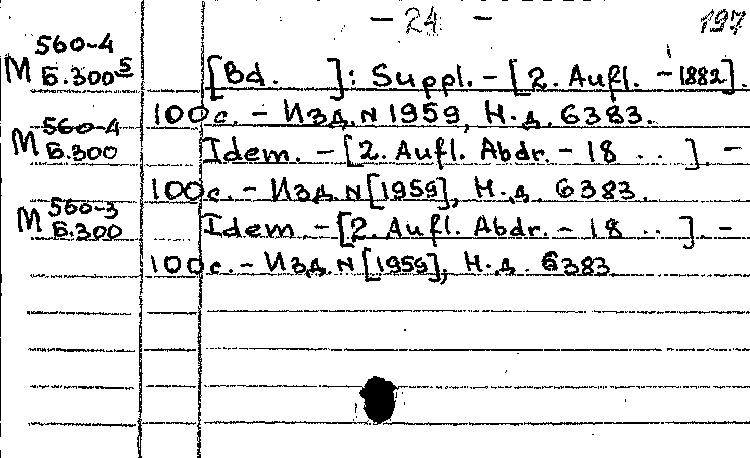 – 24 –
197
560-4
М Б.300⁵ [Bd. ]: Suppl. – [2. Aufl. – 1882].
100 с. – Изд. N 1959, Н.д. 6383.
560-4
М Б.300 Idem. – [2. Aufl. Abdr. – 18 . . ]. –
100 с. – Изд. N [1959], Н.д. 6383.
560-3
М Б.300 Idem. – [2. Aufl. Abdr. – 18 . . ]. –
100 с. – Изд. N [1959], Н.д. 6383